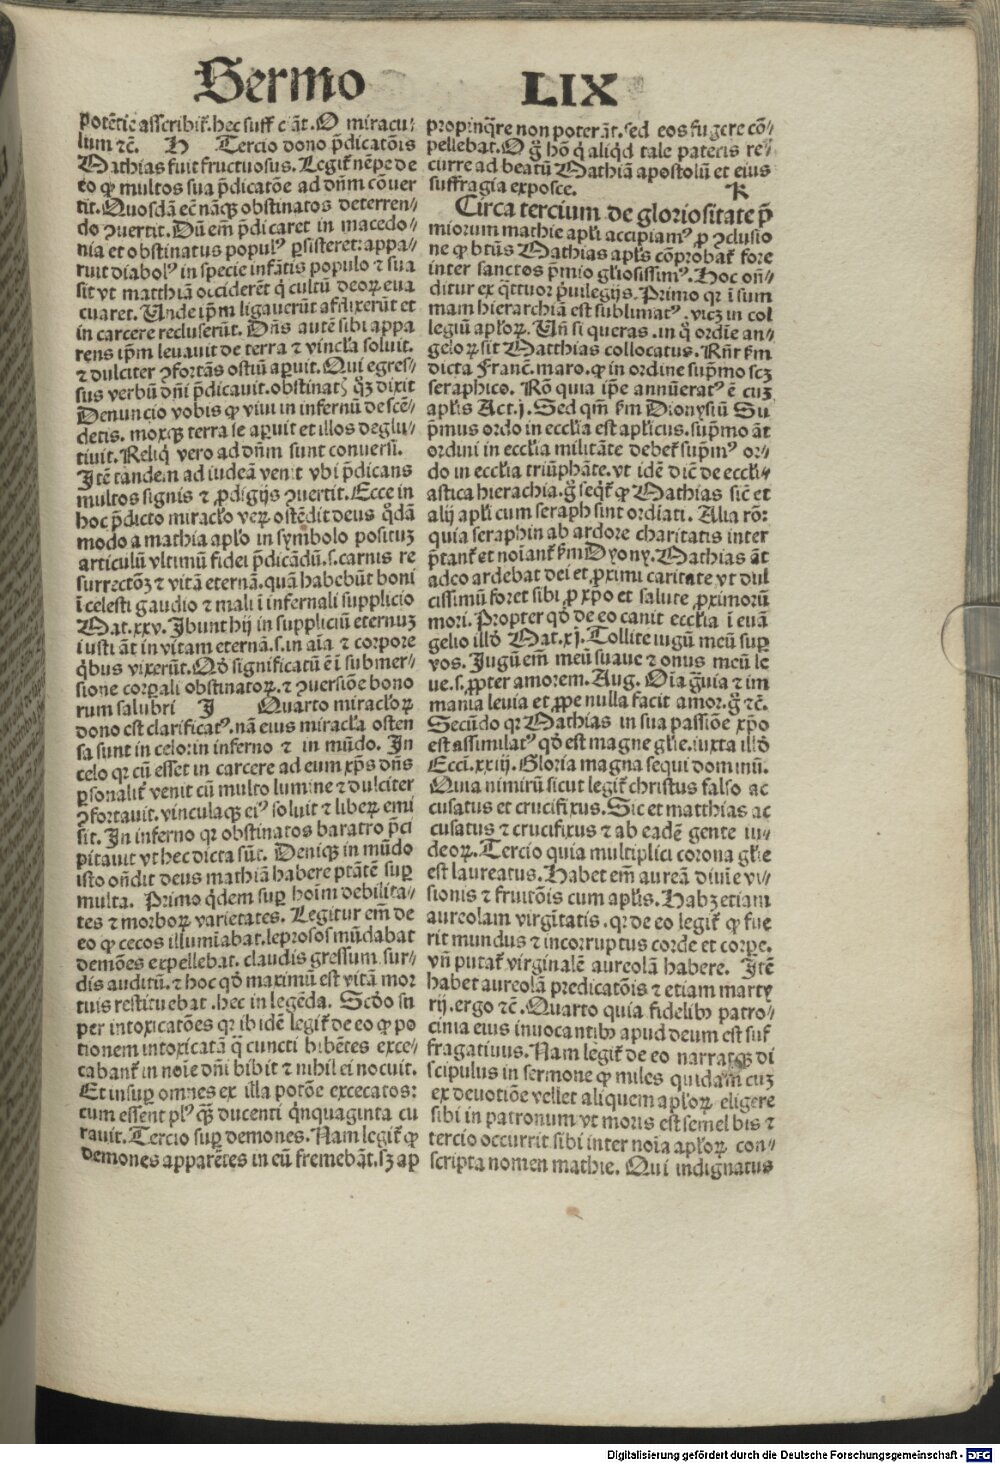 Sermo LIX
potẽtie asscribiť. hec suff c̃ ãt. O miracu-
lum ⁊c̃. H Tercio dono p̃dicatõis
Mathias fuit fructuosus. Legiť nẽpe de
eo ꝙ multos sua p̃dicatõe ad dñm cõuer
tit. Quosdã ec̃ nãqꝫ obstinatos deterren-
do ꝯuertit. Dũ em̃ p̃dicaret in macedo-
nia et obstinatus populꝰ ꝑsisteret: appa-
ruit diabolꝰ in specie infãtis populo ⁊ sua
sit vt matthiã occiderẽt q̇ cultũ deoꝝ eua
cuaret. Unde ip̃m ligauerũt afflixerũt et
in carcere recluserũt. Dñs autẽ sibi appa
rens ip̃m leuauit de terra ⁊ vincl̃a soluit.
⁊ dulciter ꝯfortãs ostiũ aꝑuit. Qui egres-
sus verbũ dñi p̃dicauit. obstinatꝭ q̃ꝫ dixit
Denuncio vobis ꝙ viui in infernũ descẽ-
detis. moxqꝫ terra se aꝑuit et illos deglu-
tiuit. Reliq̇ vero ad dñm sunt conuersi.
Itẽ tandem ad iudeã venit vbi p̃dicans
multos signis ⁊ ꝓdigijs ꝯuertit. Ecce in
hoc p̃dicto miracl̃o veꝝ ostẽdit deus q̇dã
modo a mathia apl̃o in symbolo posituꝫ
articulũ vltimũ fidei p̃dicãdũ. s. carnis re
surrectõꝫ ⁊ vitã eternã. quã habebũt boni
ĩ celesti gaudio ⁊ mali ĩ infernali supplicio
Mat. xxv. Ibunt hij in suppliciũ eternuꝫ
iusti ãt in vitam eternã. s. in aĩa ⁊ corpore
q̇bus vixerũt. Qḋ significatũ ẽ ĩ submer-
sione corꝑali obstinatoꝝ. ⁊ ꝯuersiõe bono
rum salubri I Quarto miracl̃oꝝ
dono est clarificatꝰ. nã eius miracl̃a osten
sa sunt in celo: in inferno ⁊ in mũdo. In
celo qr cũ esset in carcere ad eum xp̃s dñs
ꝑsonaliť venit cũ multo lumine ⁊ dulciter
ꝯfortauit. vinculaqꝫ eiꝰ soluit ⁊ libeꝝ emi
sit. In inferno qr obstinatos baratro p̃ci
pitauit vt hec dicta sũt. Deniqꝫ in mũdo
isto oñdit deus mathiã habere ptãtẽ suꝑ
multa. Primo q̇dem suꝑ hoĩm debilita-
tes ⁊ morboꝝ varietates. Legitur em̃ de
eo ꝙ cecos illumĩabat. leprosos mũdabat
demões expellebat. claudis gressum sur-
dis auditũ. ⁊ hoc qḋ maximũ est vitã mor
tuis restituebat. hec in legẽda. Scḋo su
per intoxicatões qr ibidẽ legiť de eo ꝙ po
tionem intoxicatã q̃ cuncti bibẽtes exce-
cabanť in noĩe dñi bibit ⁊ nihil ei nocuit.
Et insuꝑ omnes ex illa potõe excecatos:
cum essent plꝰ q̃ꝫ ducenti q̇nquaginta cu
rauit. Tercio suꝑ demones. Nam legiť ꝙ
demones apparẽtes in eũ fremebãt. sꝫ ap
propinq̃re non poterãt. sed eos fugere cõ-
pellebat. O g̃ hõ q̇ aliqḋ tale pateris re-
curre ad beatũ Mathiã apostolũ et eius
suffragia exposce. K
Circa tercium de gloriositate p̃
miorum mathie apl̃i accipiamꝰ ꝓ ꝯclusio
ne ꝙ btũs Mathias apl̃s cõprobať fore
inter sanctos p̃mio gl̃iosissimꝰ. Hoc oñ-
ditur ex q̃ttuor p̃uilegijs. Primo qr ĩ sum
mam hierarchiam est sublimatꝰ. vicꝫ in col
legiũ apl̃oꝝ. Uñ si queras. in q̇ ordĩe an-
geloꝝ sit Matthias collocatus. Rñr ẜm
dicta Franc̃. maro. ꝙ in ordine sup̃mo scꝫ
seraphico. Rõ quia ip̃e annũeratꝰ ẽ cuꝫ
apl̃is Act. j. Sed qm̃ ẜm Dionysiũ Su
p̃mus ordo in eccl̃ia est apl̃icus. sup̃mo ãt
ordini in eccl̃ia militãte debeť sup̃mꝰ or-
do in eccl̃ia triũphãte. vt idẽ dic̃ de eccl̃i-
astica hierachia. g̃ seq̇ť ꝙ Mathias sic̃ et
alij apl̃i cum seraph sint ordĩati. Alia rõ:
quia seraphin ab ardore charitatis inter
p̃tanť et noĩanť ẜm Dyony. Mathias ãt
adeo ardebat dei et ꝓximi caritate vt dul
cissimũ foret sibi ꝓ xp̃o et salute ꝓximorũ
mori. Propter qḋ de eo canit eccl̃ia ĩ euã
gelio illḋ Mat. xj. Tollite iugũ meũ suꝑ
vos. Iugũ em̃ meũ suaue ⁊ onus meũ le
ue. s. ꝓpter amorem. Aug. Oĩa g̃uia ⁊ im
mania leuia et ꝓpe nulla facit amor. g̃ ⁊c̃.
Secũdo qr Mathias in sua passiõe xp̃o
est assimilatꝰ qḋ est magne gl̃ie. iuxta illḋ
Ecci. xxiij. Gloria magna sequi dominũ.
Quia nimirũ sicut legiť christus falso ac
cusatus et crucifixus. Sic et matthias ac
cusatus ⁊ crucifixus ⁊ ab eadẽ gente iu-
deoꝝ. Tercio quia multiplici corona gl̃ie
est laureatus. Habet em̃ aureã diuĩe vi-
sionis ⁊ fruitõis cum apl̃is. Habꝫ etiam
aureolam virgĩtatis. qr de eo legiť ꝙ fue
rit mundus ⁊ incorruptus corde et corꝑe.
vñ putať virginalẽ aureolã habere. Itẽ
habet aureolã predicatõis ⁊ etiam marty
rij. ergo ⁊c̃. Quarto quia fidelibꝰ patro-
cinia eius inuocantibꝰ apud deum est suf
fragatiuus. Nam legiť de eo narratqꝫ di
scipulus in sermone ꝙ miles quidam cuꝫ
ex deuotiõe vellet aliquem apl̃oꝝ eligere
sibi in patronum vt moris est semel bis ⁊
tercio occurrit sibi inter noĩa apl̃oꝝ con-
scripta nomen mathie. Qui indignatus
Digitalisierung gefördert durch die Deutsche Forschungsgemeinschaft - DFG